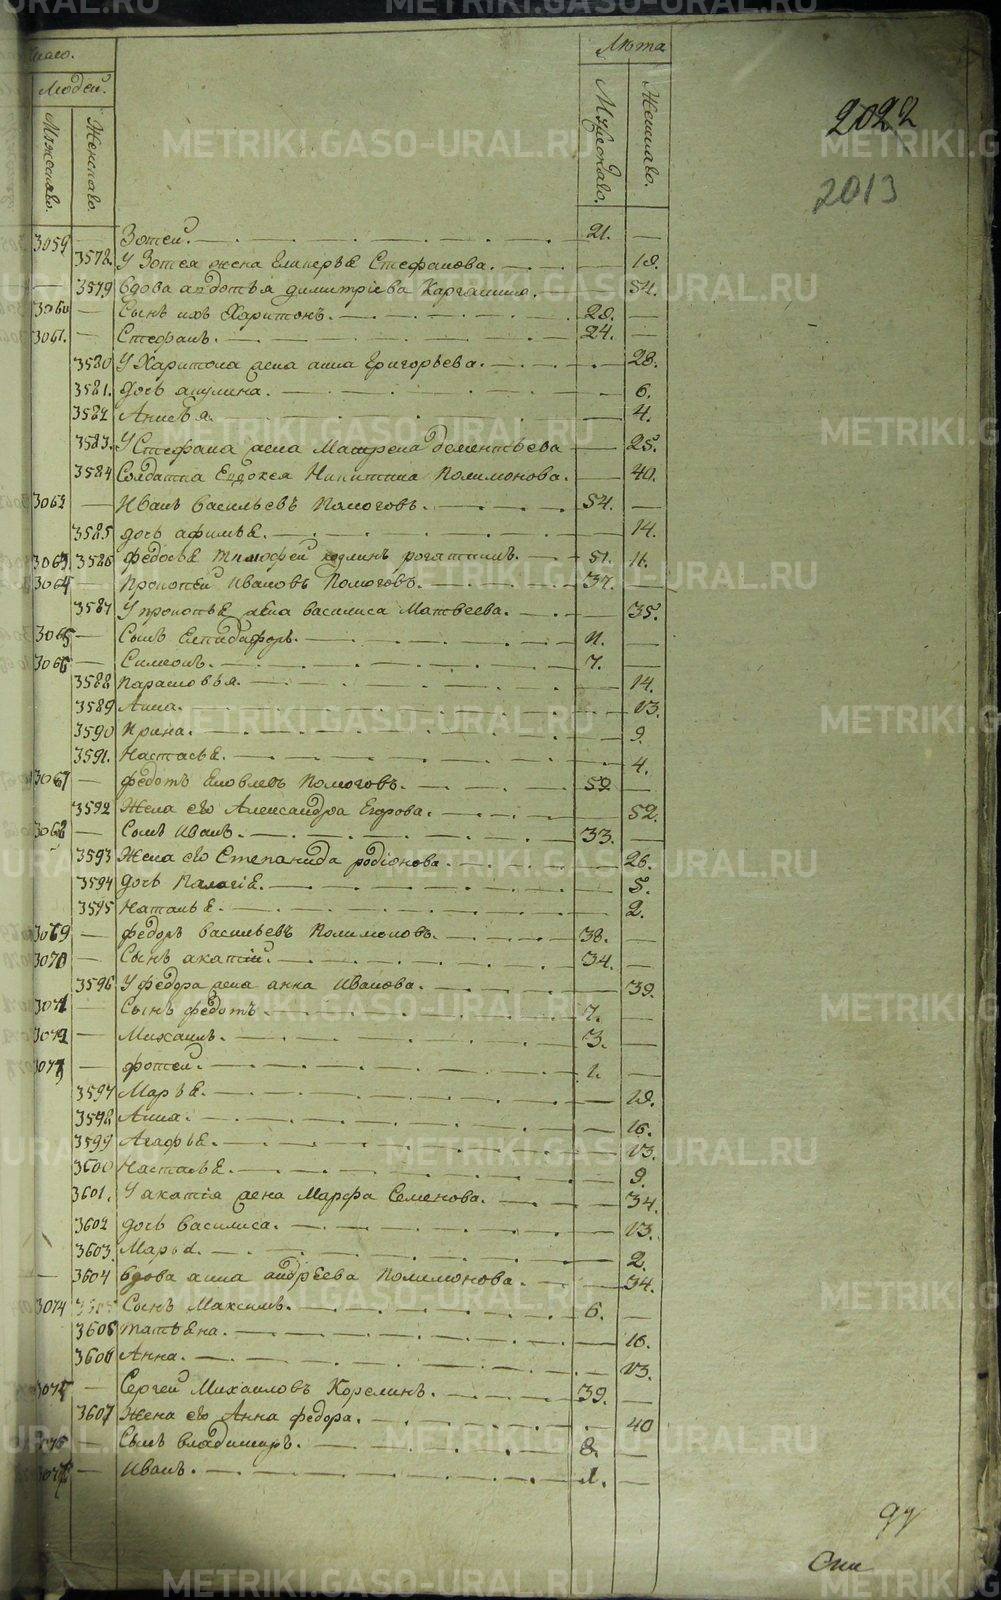 Лѣта
Людей.
Мужескаго.
Женскаго.
Мужескаго.
Женскаго.
2022
2013
3059 — Зотей. 21. —
3578. У Зотея жена Гликерья Стефанова. — 18.
3579 Вдова авдотья димитріева — 54.
3060 — Сынъ ихъ Харитонъ. 28. —
3061. — Стефанъ. 24. —
3580 У Харитона жена анна Григорьева. — 28.
3581. дочь акулина. — 6.
3582 Анисья. — 4.
3583. У Стефана жена Матрена дементьева — 25.
3584 Солдатка Евдокея Никитина Полимонова. — 40.
3062 — Иванъ Васильевъ Пологовъ. 54. —
3585 дочь афимья. — 14.
3063 3586 51. 11.
3064 — Прокопей Ивановъ Пологовъ. 37. —
3587 У прокопья жена василиса Матвеева. — 35.
3065 — Сынъ 11. —
3066 — Симеонъ. 7. —
3588 Парасковья. — 14.
3589 Анна. — 13.
3590 Ирина. — 9.
3591. Настасья. — 4.
3067 — федотъ Яковлевъ Пологовъ. 58. —
3592 Жена его Александра Егорова. — 52.
3068 — Сынъ Иванъ. 33. —
3593 Жена его Степанида родіонова. — 26.
3594 дочь Палагія. — 5.
3595 Наталья. — 2.
3069 — федоръ Васильевъ Полимоновъ. 38. —
3070 — Сынъ акатій. 34. —
3596 У федора жена анна Иванова. — 39.
3071 — Сынъ федотъ 7. —
3072 — Михаилъ. 3. —
3073 — фотей. 1. —
3597 Марья. — 18.
3598 Анна. — 16.
3599 Агафья. — 13.
3600 Настасья. — 9.
3601. У акатія жена Марфа Семенова. — 34.
3602 дочь Василиса. — 13.
3603. Марья. — 2.
3604 Вдова анна андреева Полимонова. — 34.
3074 Сынъ Максимъ. 6. —
3605 татьяна. — 16.
3606 Анна. — 13.
3075 — Сергей Михаиловъ Корелинъ. 39. —
3607 Жена его Анна федора. — 40
3076 — Сынъ владимиръ. 8. —
3077 — Иванъ. 1. —
METRIKI.GASO-URAL.RU